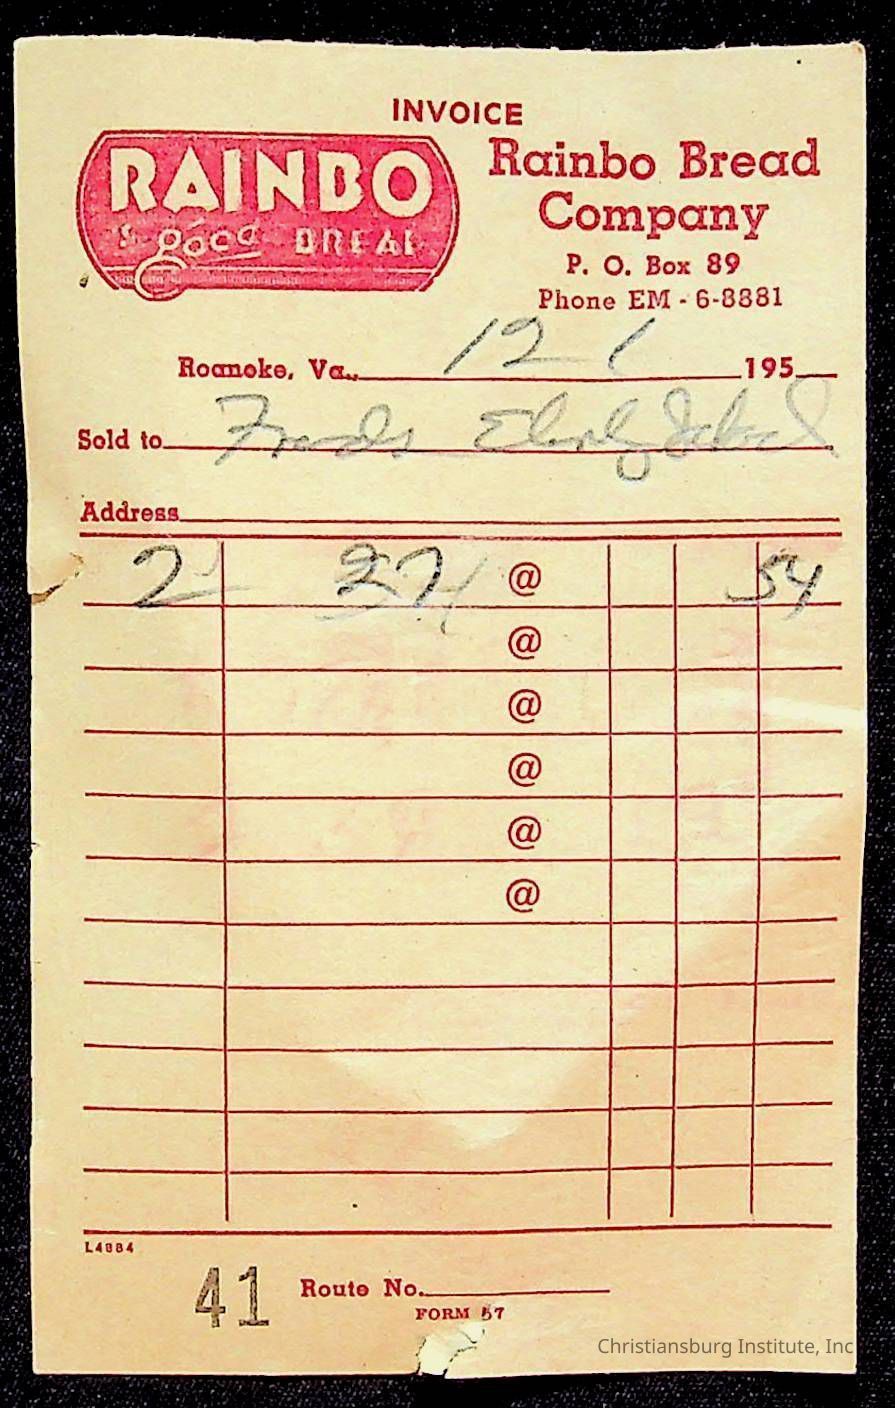 INVOICE
RAINBO
is good BREAD
Rainbo Bread
Company
P. O. Box 89
Phone EM - 6-8881
Roanoke, Va., 12 1 195
Sold to Friends Elem School
Address
2 27 @ 54
@
@
@
@
@
L4884
41 Route No.
FORM 57
Christiansburg Institute, Inc